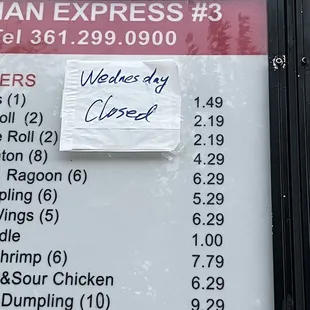 IAN EXPRESS #3
Tel 361.299.0900
ERS
Wednesday
Closed
(1) 1.49
oll (2) 2.19
e Roll (2) 2.19
ton (8) 4.29
Ragoon (6) 6.29
pling (6) 5.29
Wings (5) 6.29
dle 1.00
hrimp (6) 7.79
&Sour Chicken 6.29
Dumpling (10) 9.29